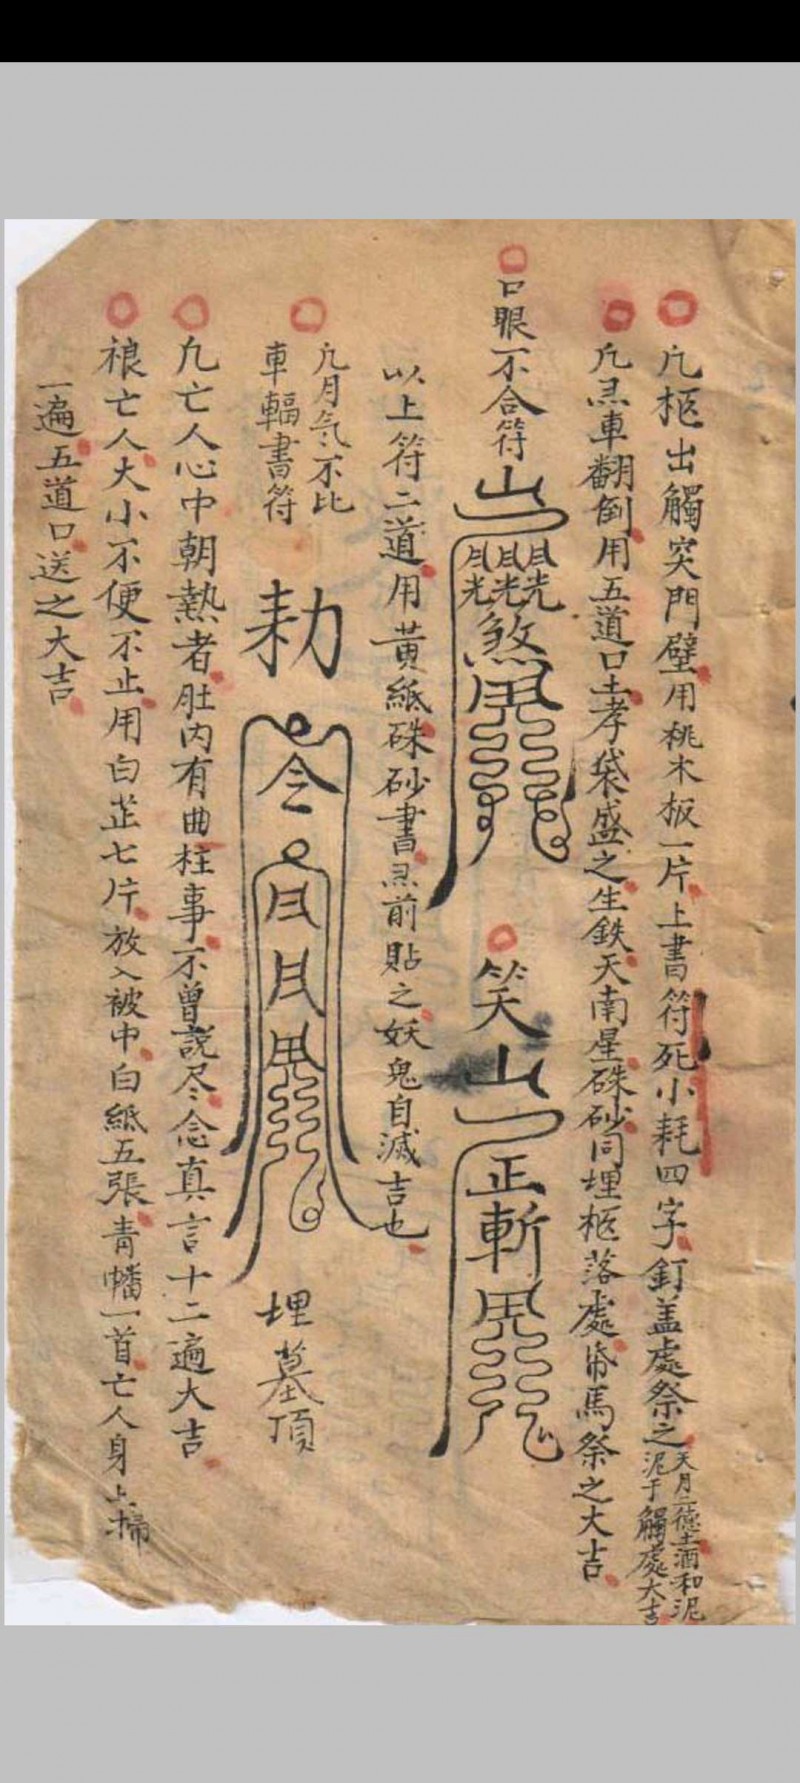 凢柩出觸突門壁用桃木板一片上書符死小耗四字釘盖處祭之
天月二德土酒和泥
泥于觸處大吉
凢灵車翻倒用五道口土孝袋盛之生鉄天南星硃砂同埋柩落處帋馬祭之大吉
口眼不合符
煞
笑
正斬
以上符二道用黄紙硃砂書灵前貼之妖鬼自滅吉也
凢月气不比
車輻書符
勅
令
月
月
埋墓頂
凢亡人心中朝熱者肚内有曲柱事不曾説尽念真言十二遍大吉
亡人大小不便不止用白芷七片放入被中白紙五張青幡一首亡人身上掃
一遍五道口送之大吉